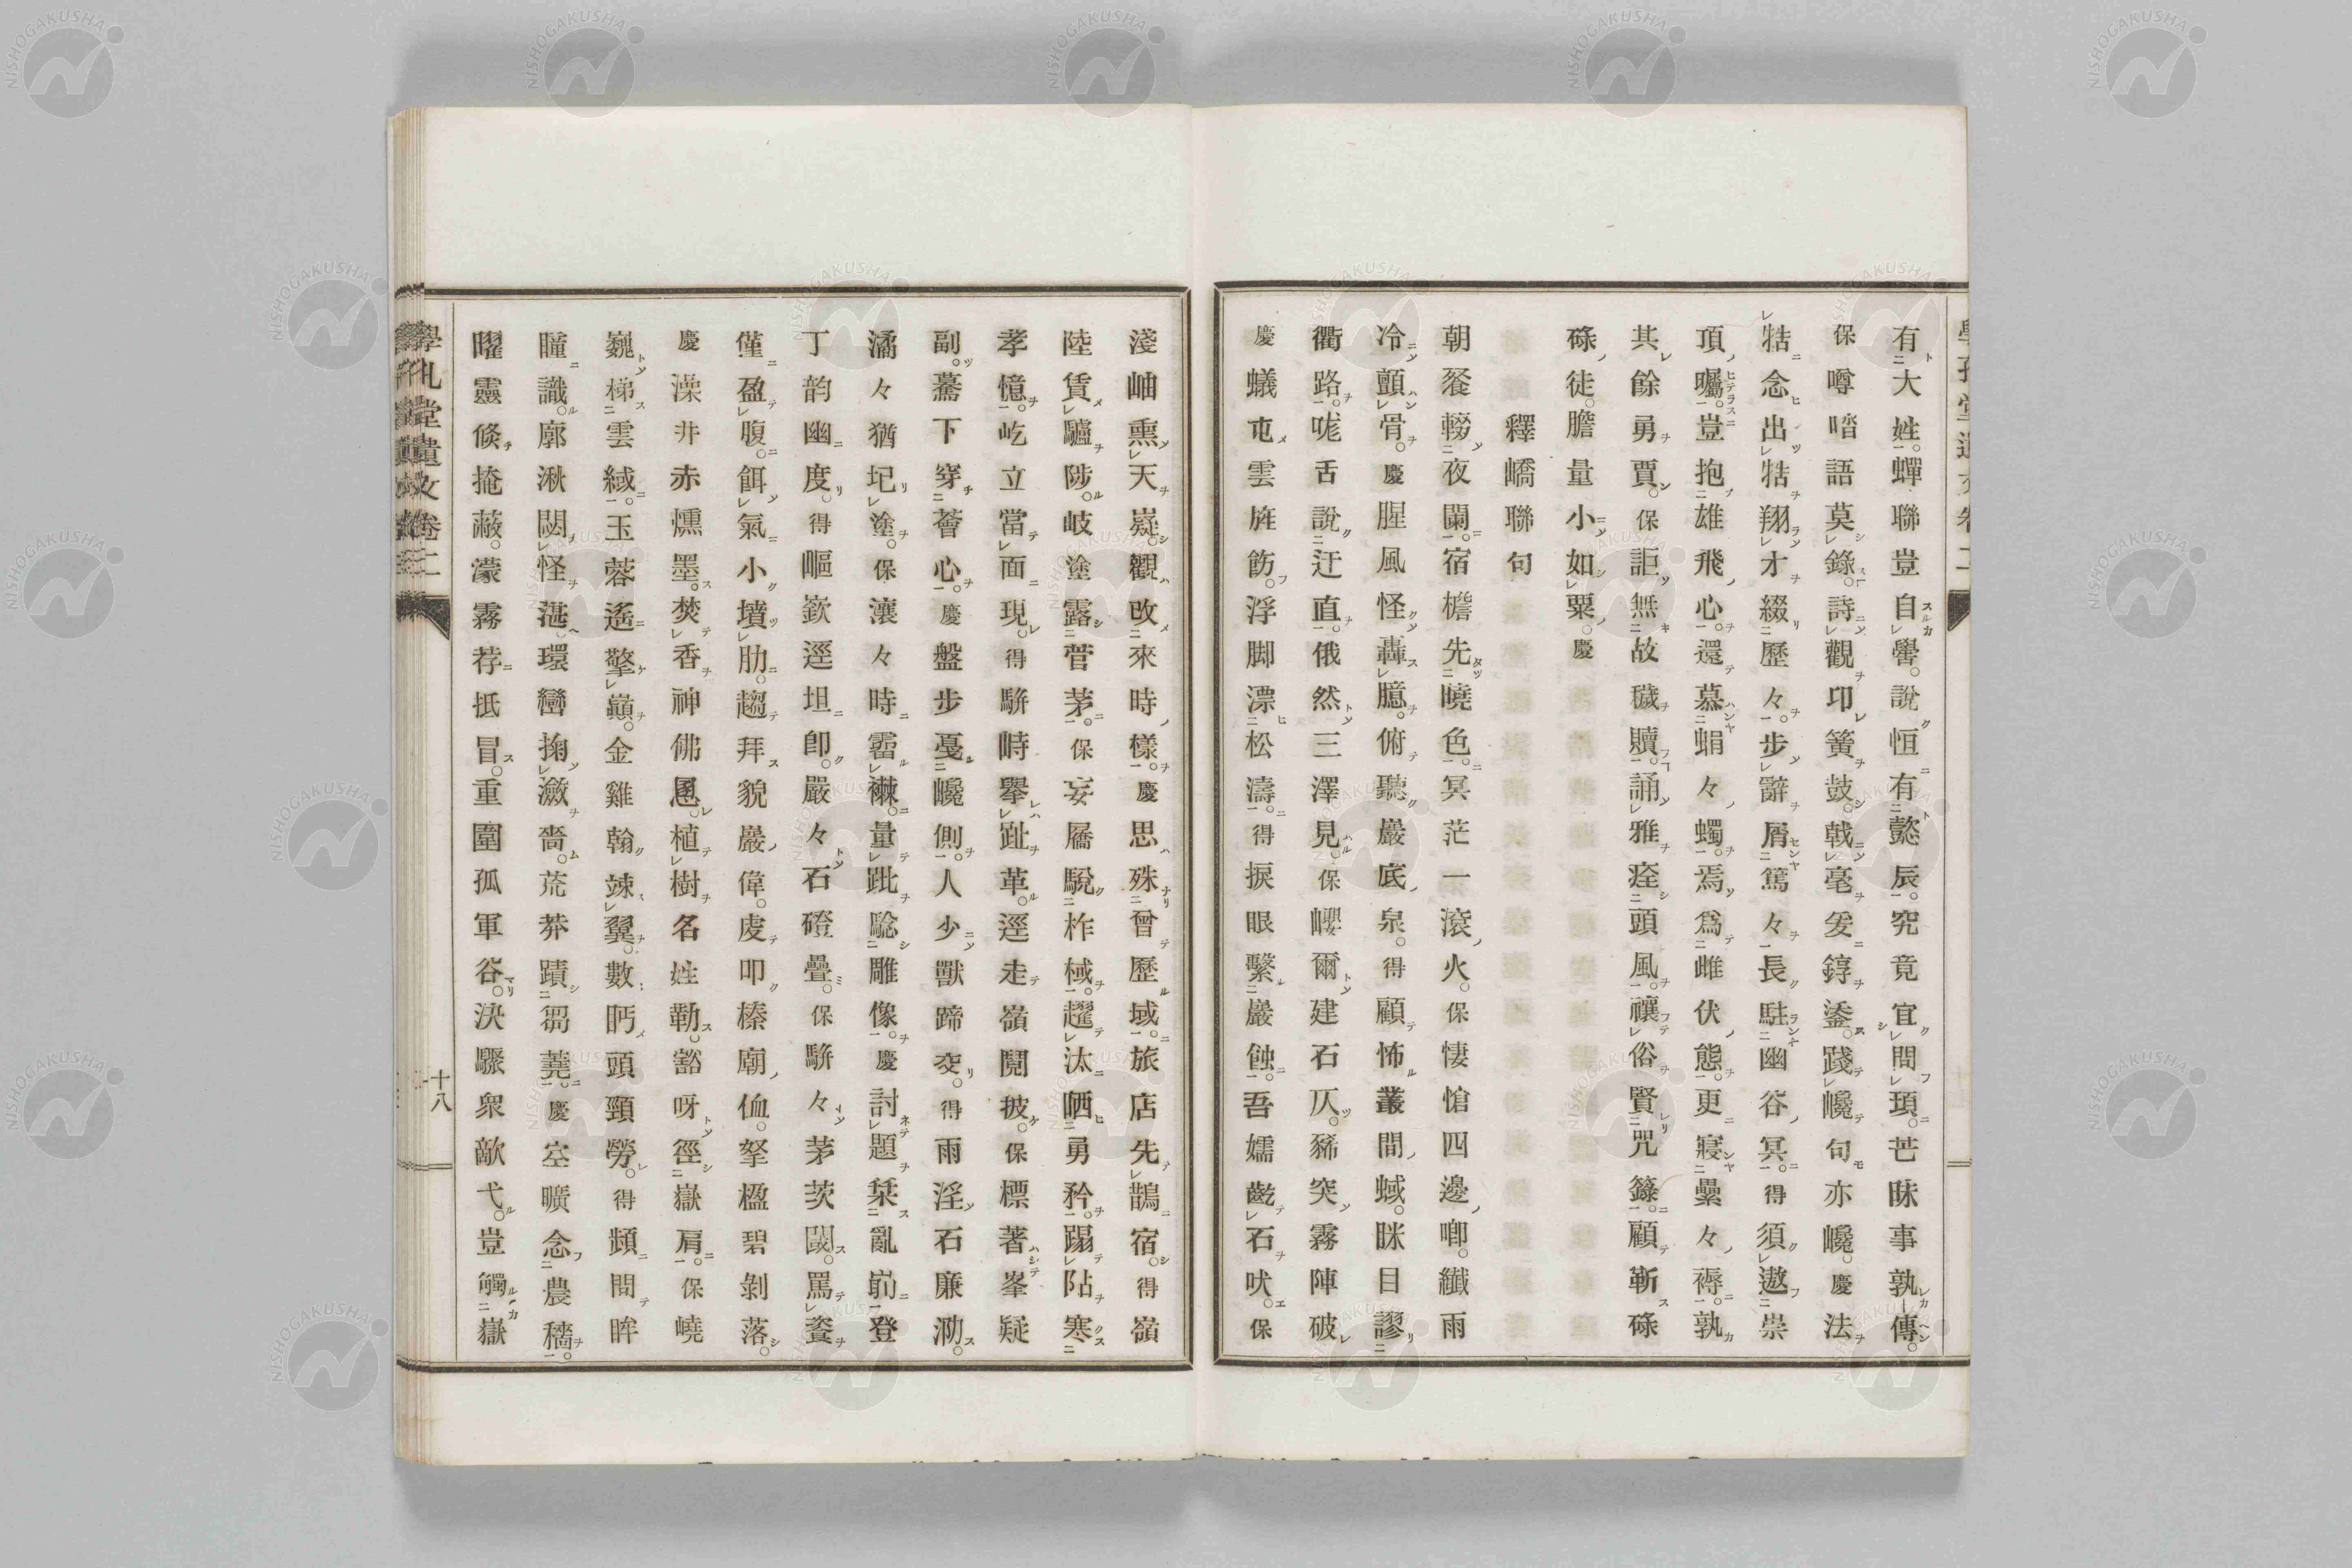 有大姓。蟬聯豈自譽。說恒有懿辰。究竟宜問頊。芒昧事孰傳。
保噂喈語莫錄。詩觀卬簧鼓。戟毫爰錞鋈。踐巉句亦巉。慶法
牯念出牯翔才綴歷々。步辭屑篤々長駐幽谷冥。得須遨崇
頂曯。豈抱雄飛心。還慕蜎々蠋。焉爲雌伏態。更寢纍々褥。孰
其餘勇賈。保詎無故穢贖。誦雅痊頭風。禳俗賢咒籙。顧蘄碌
碌徒。膽量小如粟。慶
釋嶠聯句
朝餐輟夜闌。宿檐先曉色。冥茫一滾火。保悽愴四邊喞。纖雨
冷顫骨。慶腥風怪轟臆。俯聽巖底泉。得顧怖叢間蜮。眯目謬
衢路。咙舌說迂直。俄然三澤見。保巊爾建石仄。豨突霧陣破
慶蟻屯雲旌飭。浮脚漂松濤。得捩眼繫巖蝕。吾嬬齕石吠。保
淺岫熏天嶷。觀改來時樣。慶思殊曾歷域。旅店先鵲宿。得嶺
陸賃驢陟。岐塗露菅茅。保妄屩駾柞棫。趯汰哂勇矜。踢阽寒
孝憶。屹立當面現。得駢時擧趾革。逕走嶺閲披。保標著峯疑
副。驀下穿薈心。慶盤步戞巉側。人少獸蹄交。得雨淫石廉泐。
潏々猶圯塗。保瀼々時霑襋。量跐騐雕像。慶討題栞亂崱登
丁韵幽度。得嶇嶔逕坦卽。嚴々石磴疊。保駢々茅茨閾。罵資
僅盈腹。餌氣小墳肋。趨拜貌巖偉。虔叩榛廟侐。拏楹碧剝落。
慶澡井赤燻墨。焚香神佛慁。植樹名姓勒。豁呀徑嶽肩。保嶢
巍梯雲緎。玉蓉遙擎巓。金雞翰竦翼。數眄頭頸勞。得頻問眸
瞳識。廓湫閟怪湛。環巒掬瀲嗇。荒莽蹟芻蕘。慶空曠念農穡。
曜靈倏掩蔽。濛霧荐抵冒。重圍孤軍谷。決驟衆敵弋。豈觸嶽
學孔堂遺文 卷二
十八